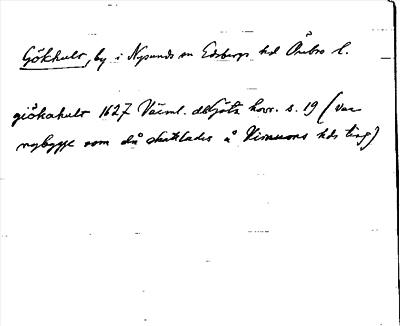 Gökhult, by i Nysunds sn Edsbergs hd Örebro l.
giökahult 1627 Värml. o Götz korr. s. 19 (var
nybygge som då skattlades å Visnums hds ting)